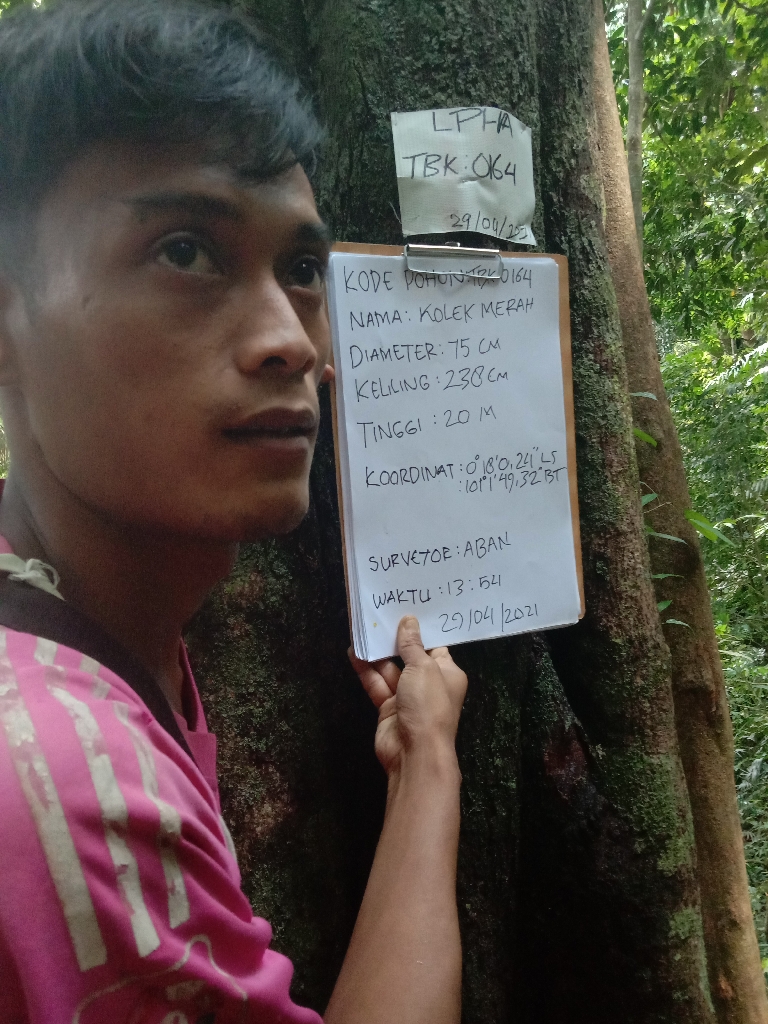 LPHA
TBK:0164
29/04/202
KODE POHON:TBK0164
NAMA: KOLEK MERAH
DIAMETER: 75 CM
KELILING: 238 CM
TINGGI : 20 M
KOORDINAT : 0°18'0,24" LS
: 101°1'49,32" BT
SURVEYOR: ABAN
WAKTU : 13:54
29/04/2021